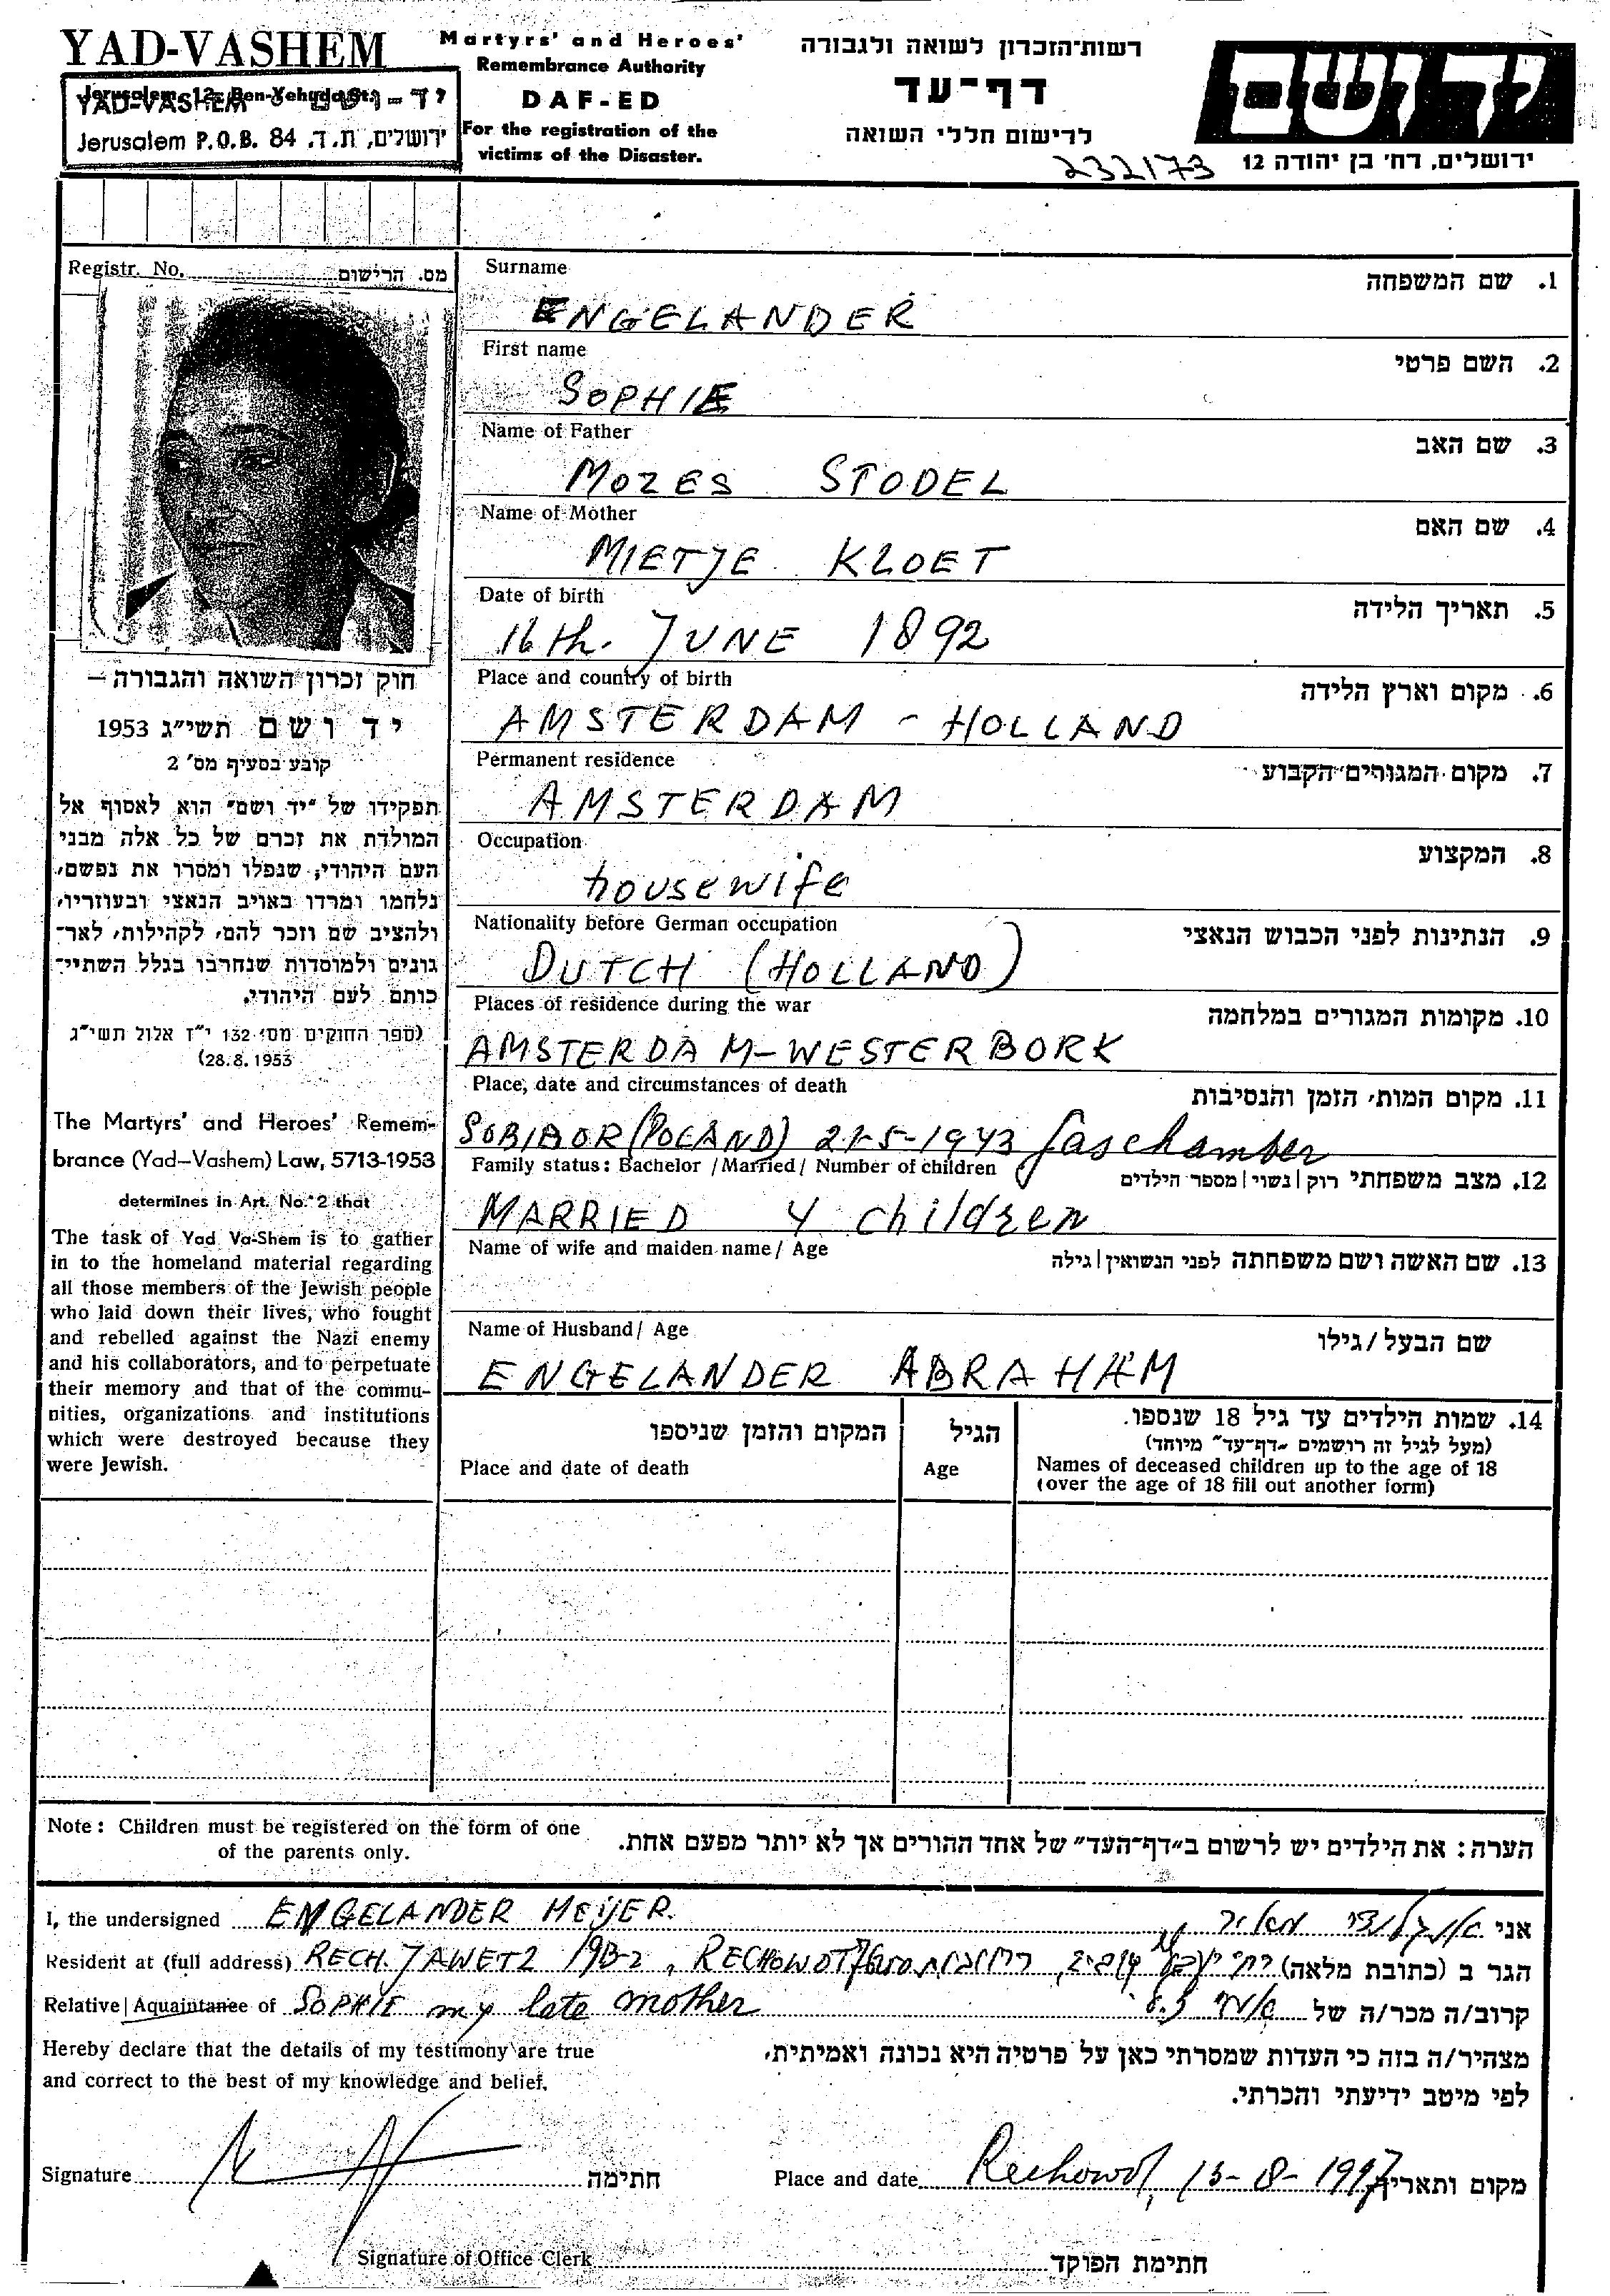 YAD-VASHEM
Martyrs' and Heroes'
Remembrance Authority
DAF-ED
For the registration of the
victims of the Disaster.
Jerusalem, 12, Ben-Yehuda St.
YAD-VASHEM יד-ושם
Jerusalem P.O.B. 84 ירושלים, ת.ד.
רשות־הזכרון לשואה ולגבורה
דף־עד
לרישום חללי השואה
יד ושם
ירושלים, רח' בן יהודה 12
232173
Registr. No. מס. הרישום
Surname 1. שם המשפחה
ENGELANDER
First name 2. השם פרטי
SOPHIE
Name of Father 3. שם האב
MOZES STODEL
Name of Mother 4. שם האם
MIETJE KLOET
Date of birth 5. תאריך הלידה
16th. JUNE 1892
Place and country of birth 6. מקום וארץ הלידה
AMSTERDAM - HOLLAND
Permanent residence 7. מקום המגורים הקבוע
AMSTERDAM
Occupation 8. המקצוע
housewife
Nationality before German occupation 9. הנתינות לפני הכבוש הנאצי
DUTCH (HOLLAND)
Places of residence during the war 10. מקומות המגורים במלחמה
AMSTERDAM-WESTERBORK
Place, date and circumstances of death 11. מקום המות, הזמן והנסיבות
SOBIBOR (POLAND) 21-5-1943 Gaschamber
Family status: Bachelor / Married / Number of children 12. מצב משפחתי רוק | נשוי | מספר הילדים
MARRIED 4 children
Name of wife and maiden name / Age 13. שם האשה ושם משפחתה לפני הנשואין | גילה
Name of Husband / Age שם הבעל / גילו
ENGELANDER ABRAHAM
חוק זכרון השואה והגבורה —
יד ושם תשי״ג 1953
קובע בסעיף מס' 2
תפקידו של ״יד ושם״ הוא לאסוף אל
המולדת את זכרם של כל אלה מבני
העם היהודי, שנפלו ומסרו את נפשם,
נלחמו ומרדו באויב הנאצי ובעוזריו,
ולהציב שם וזכר להם, לקהילות, לאר־
גונים ולמוסדות שנחרבו בגלל השתיי־
כותם לעם היהודי.
(ספר החוקים מס׳ 132 י״ז אלול תשי״ג
28.8.1953)
The Martyrs' and Heroes' Remem-
brance (Yad-Vashem) Law, 5713-1953
determines in Art. No. 2 that
The task of Yad Va-Shem is to gather
in to the homeland material regarding
all those members of the Jewish people
who laid down their lives, who fought
and rebelled against the Nazi enemy
and his collaborators, and to perpetuate
their memory and that of the commu-
nities, organizations and institutions
which were destroyed because they
were Jewish.
14. שמות הילדים עד גיל 18 שנספו.
(מעל לגיל זה רושמים ״דף־עד״ מיוחד)
Names of deceased children up to the age of 18
(over the age of 18 fill out another form)
הגיל
Age
המקום והזמן שניספו
Place and date of death
Note: Children must be registered on the form of one
of the parents only.
הערה: את הילדים יש לרשום ב״דף־העד״ של אחד ההורים אך לא יותר מפעם אחת.
I, the undersigned ENGELANDER MEIJER. אני אנגלנדר מאיר
Resident at (full address) RECH. JAWETZ 19B-2, RECHOWOT הגר ב (כתובת מלאה)
Relative | Aquaintanee of SOPHIE my late mother קרוב/ה מכר/ה של אמי ז.ל
Hereby declare that the details of my testimony are true
and correct to the best of my knowledge and belief.
מצהיר/ה בזה כי העדות שמסרתי כאן על פרטיה היא נכונה ואמיתית,
לפי מיטב ידיעתי והכרתי.
Signature חתימה
Place and date Rechowot, 13-8-1997 מקום ותאריך
Signature of Office Clerk חתימת הפוקד